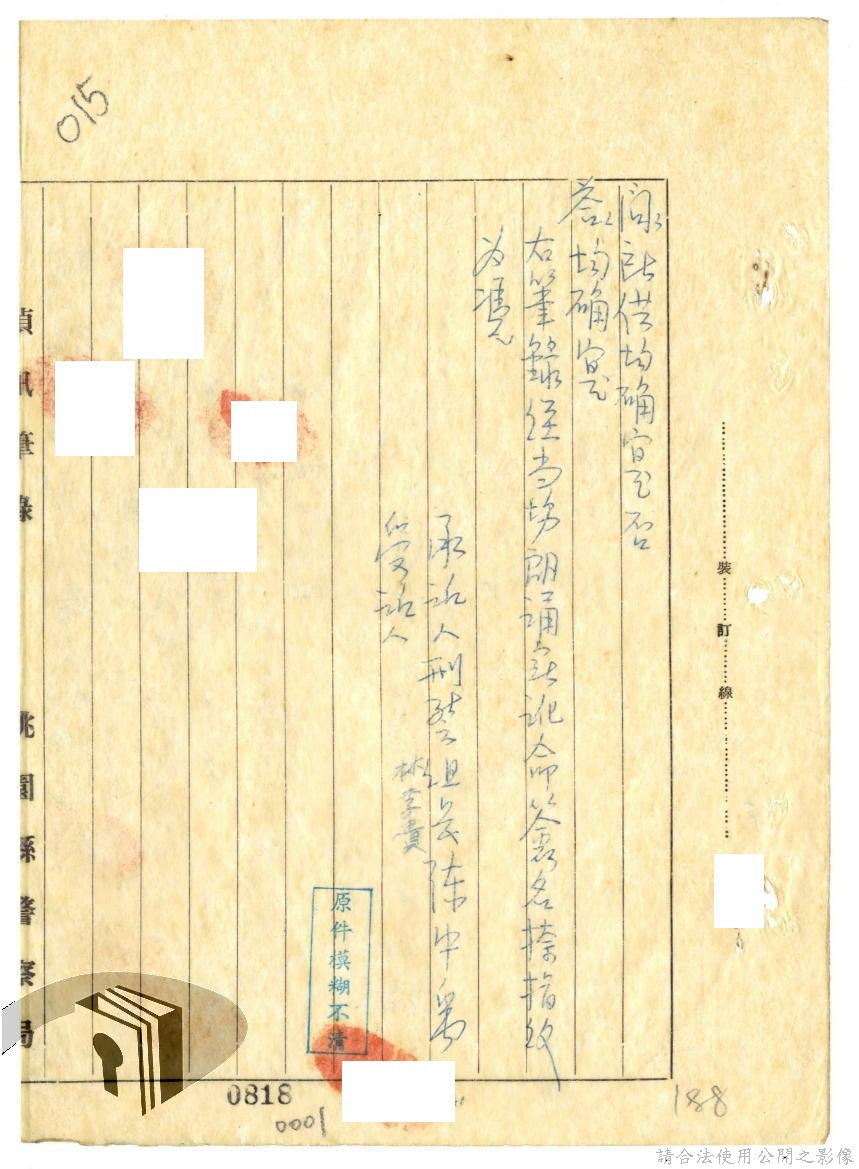 015
裝訂線
問:所供均确寔否
答:均确寔
右筆錄經当場朗誦無訛命簽名捺指紋
为憑
承訊人刑警組長陳中
受訊人 林 貴
原件模糊不清
偵訊筆錄 桃園縣警察局
0818
0001
188
請合法使用公開之影像